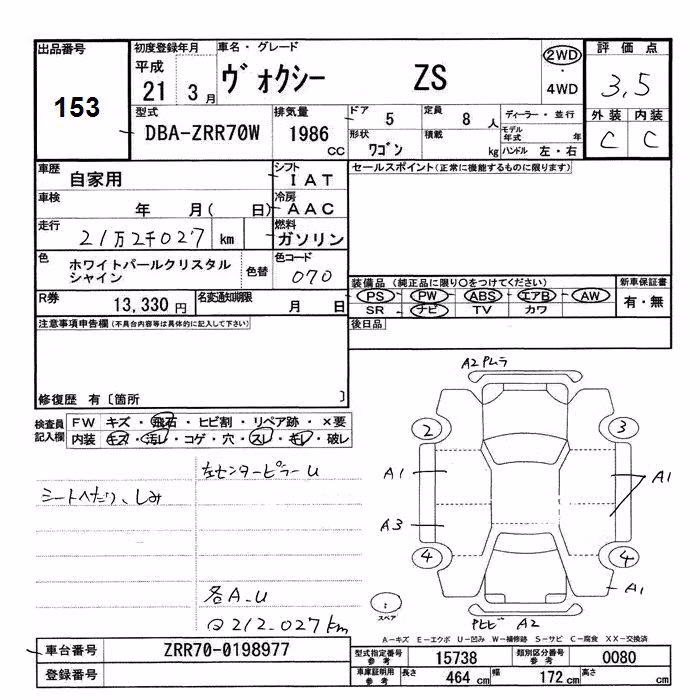 出品番号
153
初度登録年月
平成
21 3 月
車名・グレード
ヴォクシー ZS
2WD
・
4WD
評価点
3.5
型式
DBA-ZRR70W
排気量
1986
CC
ドア 5
定員 8 人
ディーラー・並行
形状 ワゴン
積載 kg
モデル年式 年
ハンドル 左・右
外装 内装
C C
車歴 自家用
シフト IAT
セールスポイント(正常に機能するものに限ります)
車検 年 月( 日)
冷房 AAC
走行 21万2千027 km
燃料 ガソリン
色 ホワイトパールクリスタル
シャイン
色替
色コード 070
装備品(純正品に限り○をつけてください)
新車保証書
PS PW ABS エアB AW
有・無
SR ナビ TV カワ
R券 13,330 円
名変通知期限 月 日
注意事項申告欄(不具合内容等は具体的に記入して下さい)
後日品
修復歴 有〔箇所 〕
検査員
記入欄
FW キズ・飛石・ヒビ割・リペア跡・×要
内装 キズ・汚レ・コゲ・穴・スレ・キレ・破レ
左センターピラーU
シートへたり、しみ
各A.U
212.027km
A2 Pムラ
2 3
A1 A1
A3
4 4
A1
スペア
Pヒビ A2
A-キズ E-エクボ U-凹み W-補修跡 S-サビ C-腐食 XX-交換済
車台番号 ZRR70-0198977
型式指定番号
参考
15738
類別区分番号
参考
0080
登録番号
車庫証明用
参考
長さ 464 cm
幅 172 cm
高さ cm